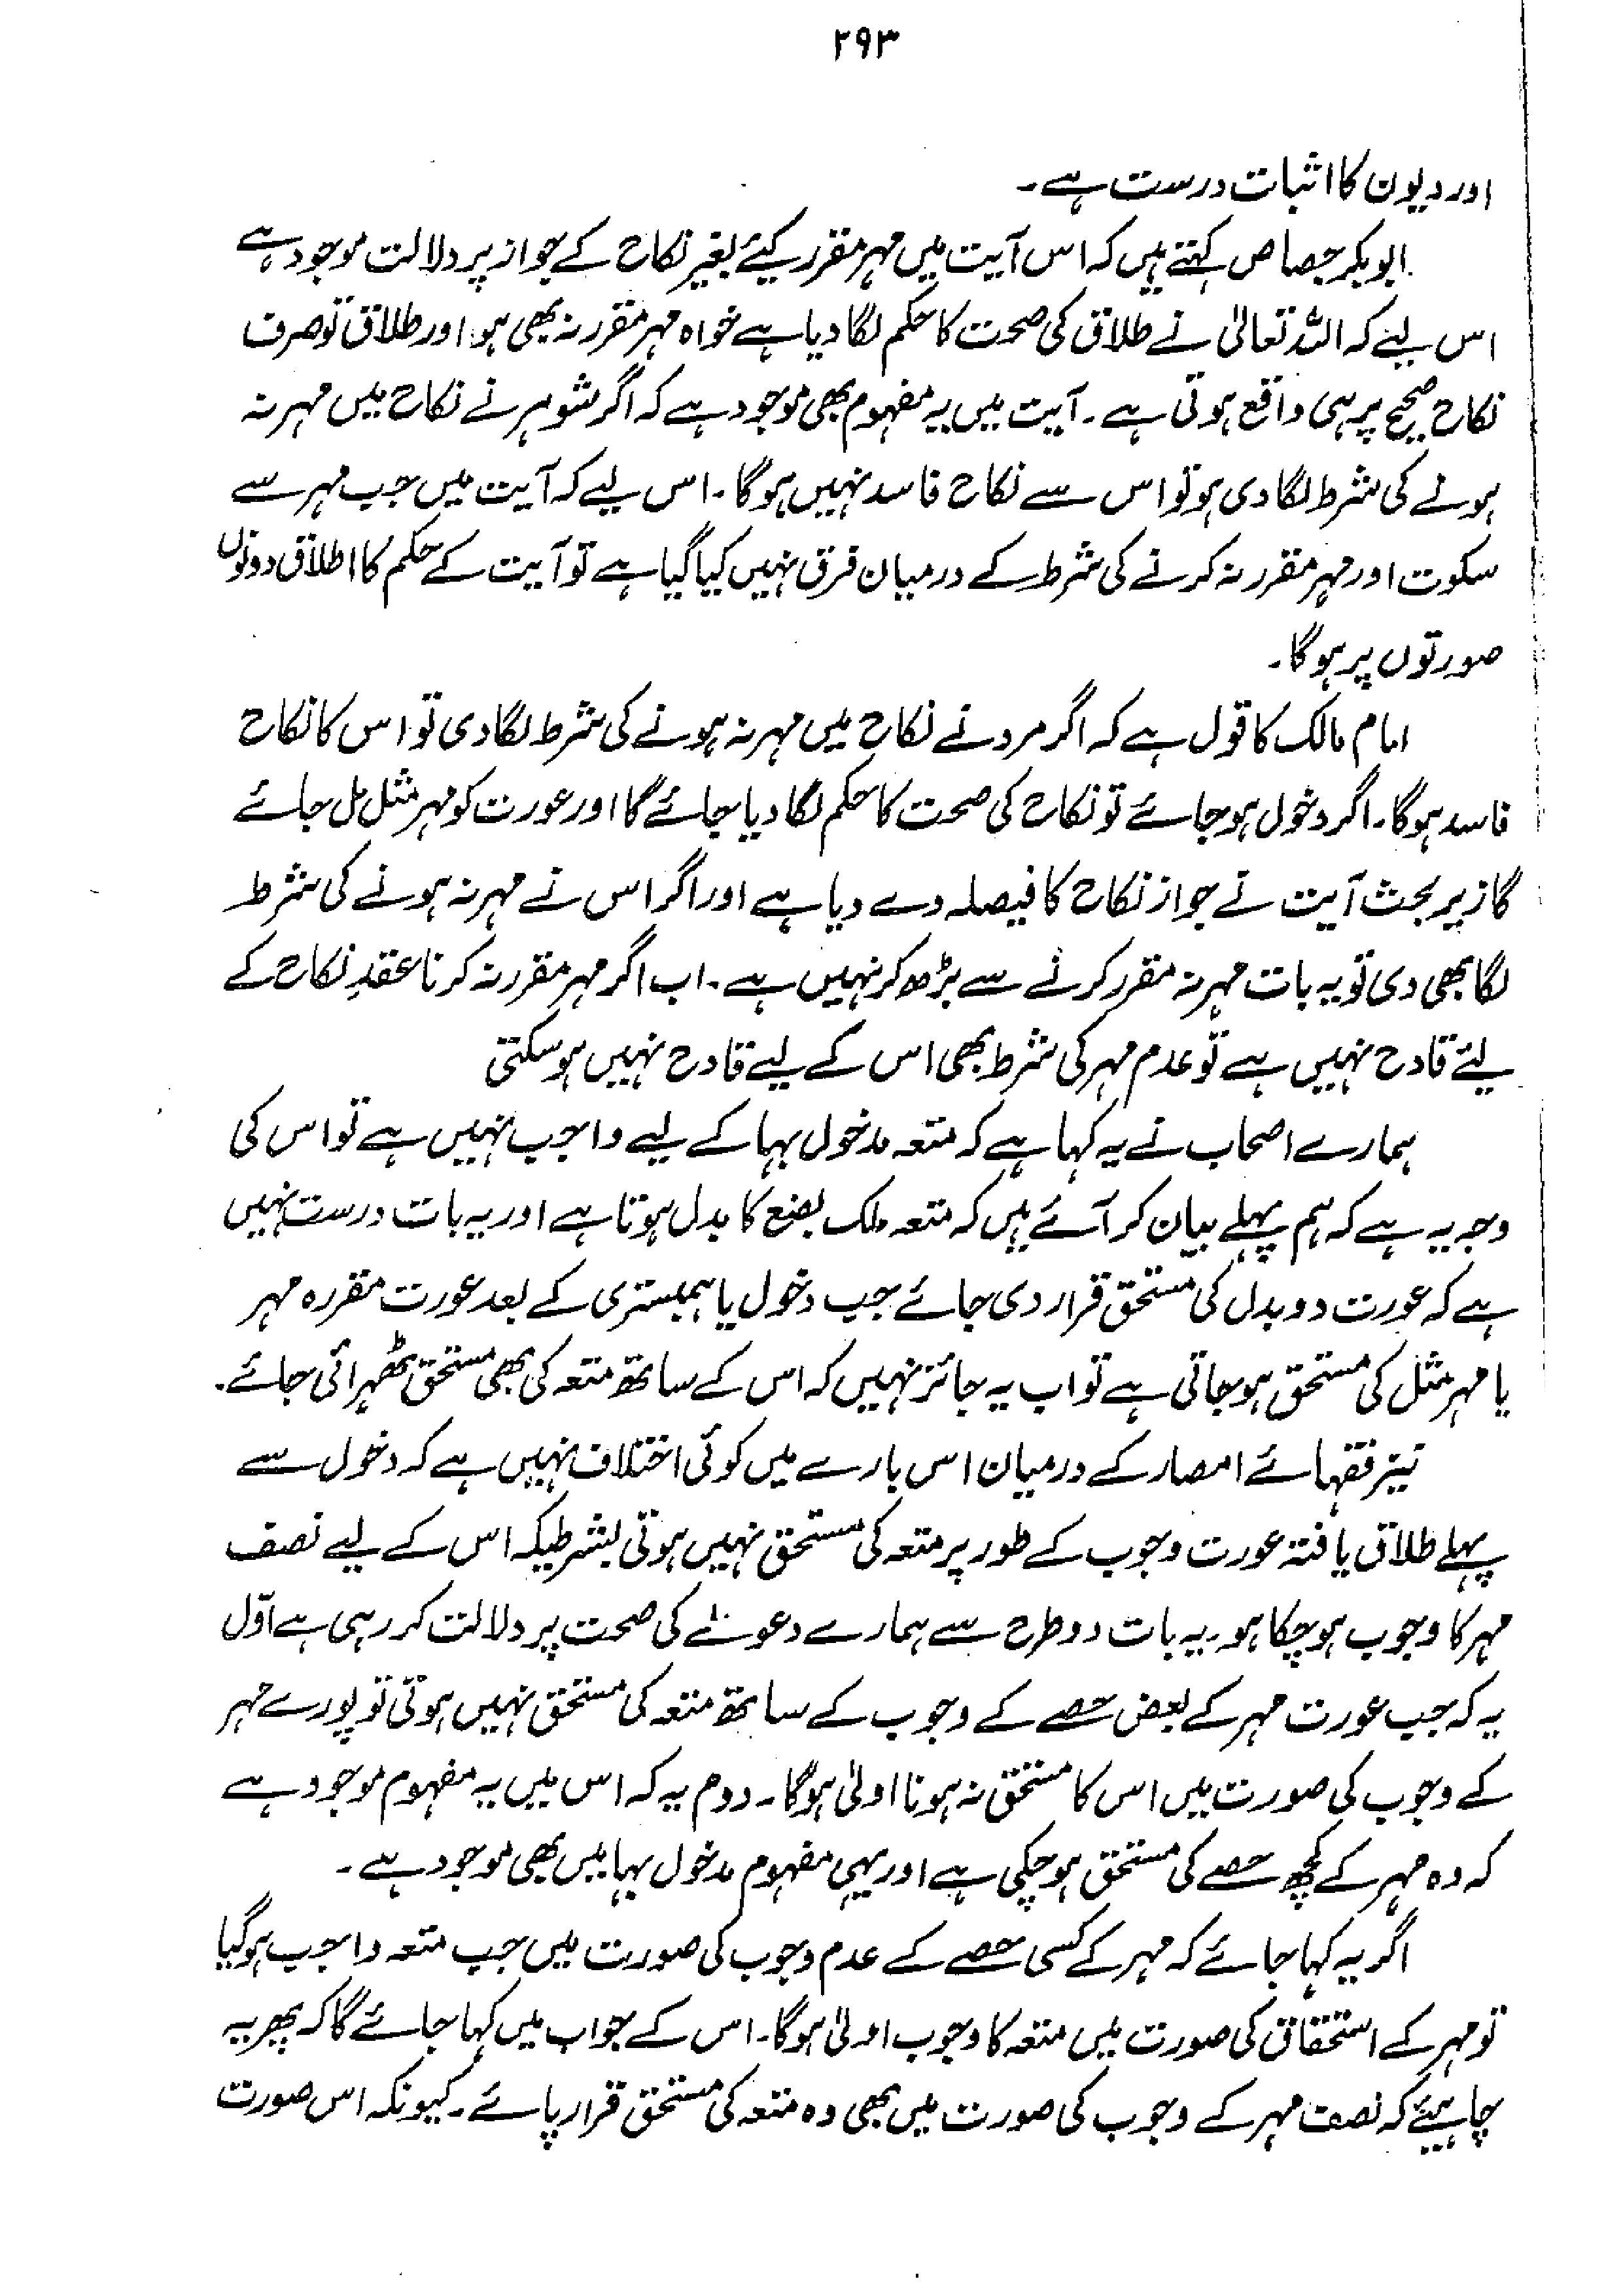 ۲۹۳
اور دیون کا اثبات درست ہے۔
ابوبکر جصاص کہتے ہیں کہ اس آیت میں مہر مقرر کیئے بغیر نکاح کے جواز پر دلالت موجود ہے
اس لیئے کہ اللہ تعالیٰ نے طلاق کی صحت کا حکم لگا دیا ہے خواہ مہر مقرر نہ بھی ہو اور طلاق تو صرف
نکاح صحیح پر ہی واقع ہوتی ہے۔ آیت میں یہ مفہوم بھی موجود ہے کہ اگر شوہر نے نکاح میں مہر نہ
ہونے کی شرط لگا دی ہو تو اس سے نکاح فاسد نہیں ہوگا۔ اس لیے کہ آیت میں جب مہر سے
سکوت اور مہر مقرر نہ کرنے کی شرط کے درمیان فرق نہیں کیا گیا ہے تو آیت کے حکم کا اطلاق دونوں
صورتوں پر ہوگا۔
امام مالک کا قول ہے کہ اگر مرد نے نکاح میں مہر نہ ہونے کی شرط لگا دی تو اس کا نکاح
فاسد ہوگا۔ اگر دخول ہو جائے تو نکاح کی صحت کا حکم لگا دیا جائے گا اور عورت کو مہر مثل مل جائے
گا زیر بحث آیت نے جواز نکاح کا فیصلہ دے دیا ہے اور اگر اس نے مہر نہ ہونے کی شرط
لگا بھی دی تو یہ بات مہر نہ مقرر کرنے سے بڑھ کر نہیں ہے۔ اب اگر مہر مقرر نہ کرنا عقدِ نکاح کے
لیئے قادح نہیں ہے تو عدم مہر کی شرط بھی اس کے لیے قادح نہیں ہو سکتی
ہمارے اصحاب نے یہ کہا ہے کہ متعہ مدخول بہا کے لیے واجب نہیں ہے تو اس کی
وجہ یہ ہے کہ ہم پہلے بیان کر آئے ہیں کہ متعہ ملک بضع کا بدل ہوتا ہے اور یہ بات درست نہیں
ہے کہ عورت دو بدل کی مستحق قرار دی جائے جب دخول یا ہمبستری کے بعد عورت مقررہ مہر
یا مہر مثل کی مستحق ہو جاتی ہے تو اب یہ جائز نہیں کہ اس کے ساتھ متعہ کی بھی مستحق ٹھہرائی جائے۔
نیز فقہائے امصار کے درمیان اس بارے میں کوئی اختلاف نہیں ہے کہ دخول سے
پہلے طلاق یافتہ عورت وجوب کے طور پر متعہ کی مستحق نہیں ہوتی بشرطیکہ اس کے لیے نصف
مہر کا وجوب ہو چکا ہو۔ یہ بات دو طرح سے ہمارے دعوئے کی صحت پر دلالت کر رہی ہے اوّل
یہ کہ جب عورت مہر کے بعض حصے کے وجوب کے ساتھ متعہ کی مستحق نہیں ہوتی تو پورے مہر
کے وجوب کی صورت میں اس کا مستحق نہ ہونا اولیٰ ہوگا۔ دوم یہ کہ اس میں یہ مفہوم موجود ہے
کہ وہ مہر کے کچھ حصے کی مستحق ہو چکی ہے اور یہی مفہوم مدخول بہا میں بھی موجود ہے۔
اگر یہ کہا جائے کہ مہر کے کسی حصے کے عدم وجوب کی صورت میں جب متعہ واجب ہوگیا
تو مہر کے استحقاق کی صورت میں متعہ کا وجوب اولیٰ ہوگا۔ اس کے جواب میں کہا جائے گا کہ پھر یہ
چاہیئے کہ نصف مہر کے وجوب کی صورت میں بھی وہ متعہ کی مستحق قرار پائے۔ کیونکہ اس صورت